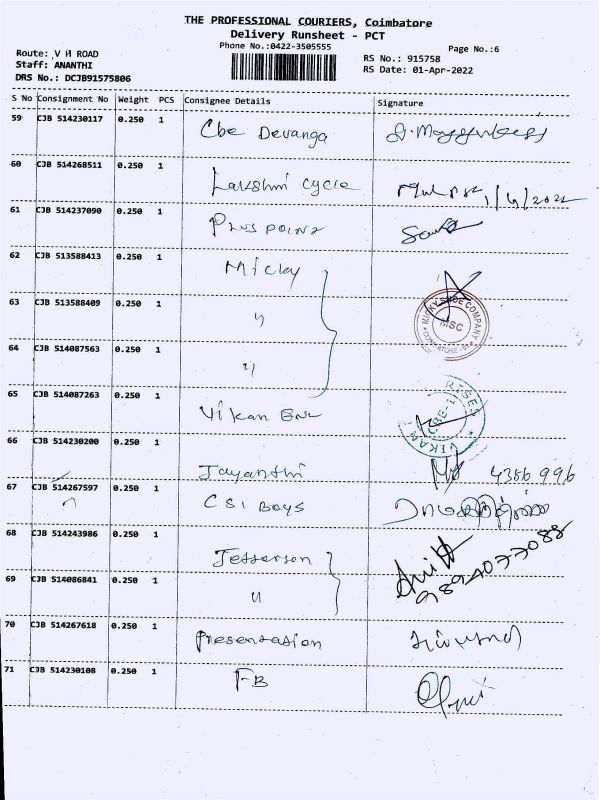 THE PROFESSIONAL COURIERS, Coimbatore
Delivery Runsheet - PCT
Phone No.:0422-3505555
Page No.:6
Route: V H ROAD
Staff: ANANTHI
DRS No.: DCJB91575806
RS No.: 915758
RS Date: 01-Apr-2022
S No Consignment No Weight PCS Consignee Details Signature
59 CJB 514230117 0.250 1 Cbe Devanga
60 CJB 514268511 0.250 1 Lakshmi Cycle 1/4/2022
61 CJB 514237090 0.250 1 Plus Point
62 CJB 513588413 0.250 1 Micky
63 CJB 513588409 0.250 1 "
MICKY SHOE COMPANY
MSC
COIMBATORE
64 CJB 514087563 0.250 1 "
65 CJB 514087263 0.250 1 Vikan Ent
VIKAN
CBE-1
66 CJB 514230200 0.250 1 Jayanthi 4356 996
67 CJB 514267597 0.250 1 CSI Boys
68 CJB 514243986 0.250 1 Jefferson
9894077088
69 CJB 514086841 0.250 1 "
70 CJB 514267618 0.250 1 Presentation
71 CJB 514230108 0.250 1 FB